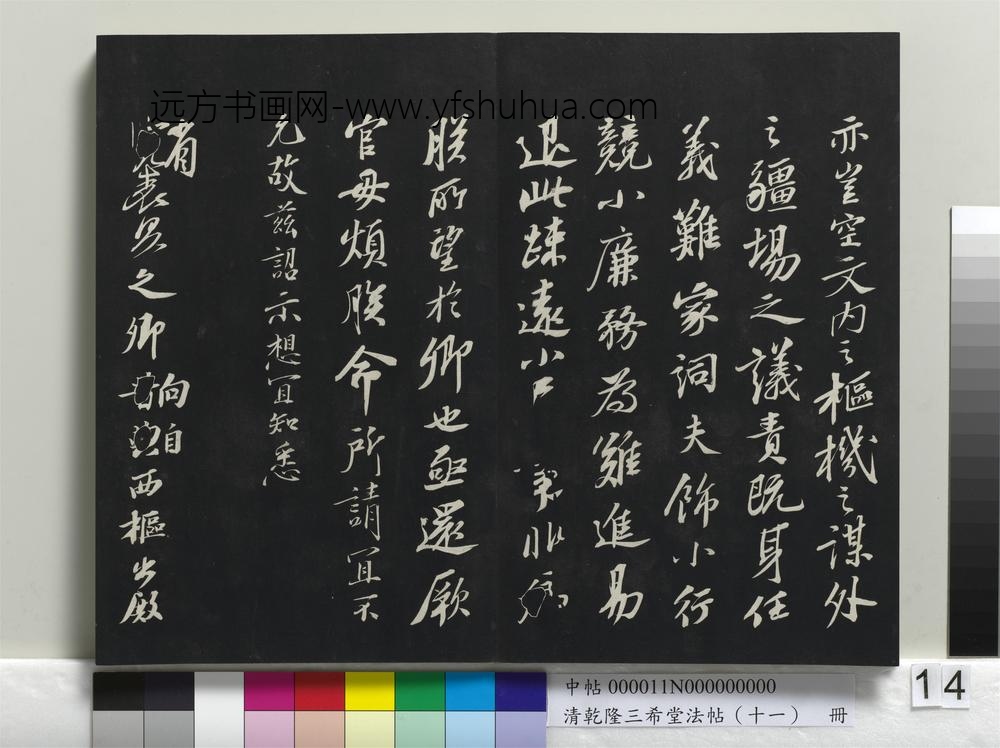 远方书画网-www.yfshuhua.com
亦豈空文内之樞機之謀外
之疆場之議責既身任
義難家詞夫飾小行
競小廉務為難進易
退此踈遠小
朕所望於卿也亟還厥
官毋煩朕命所請宜不
允故兹詔示想宜知悉
省
表具之卿
向自西樞出殿
中帖 000011N000000000
清乾隆三希堂法帖（十一） 冊
14